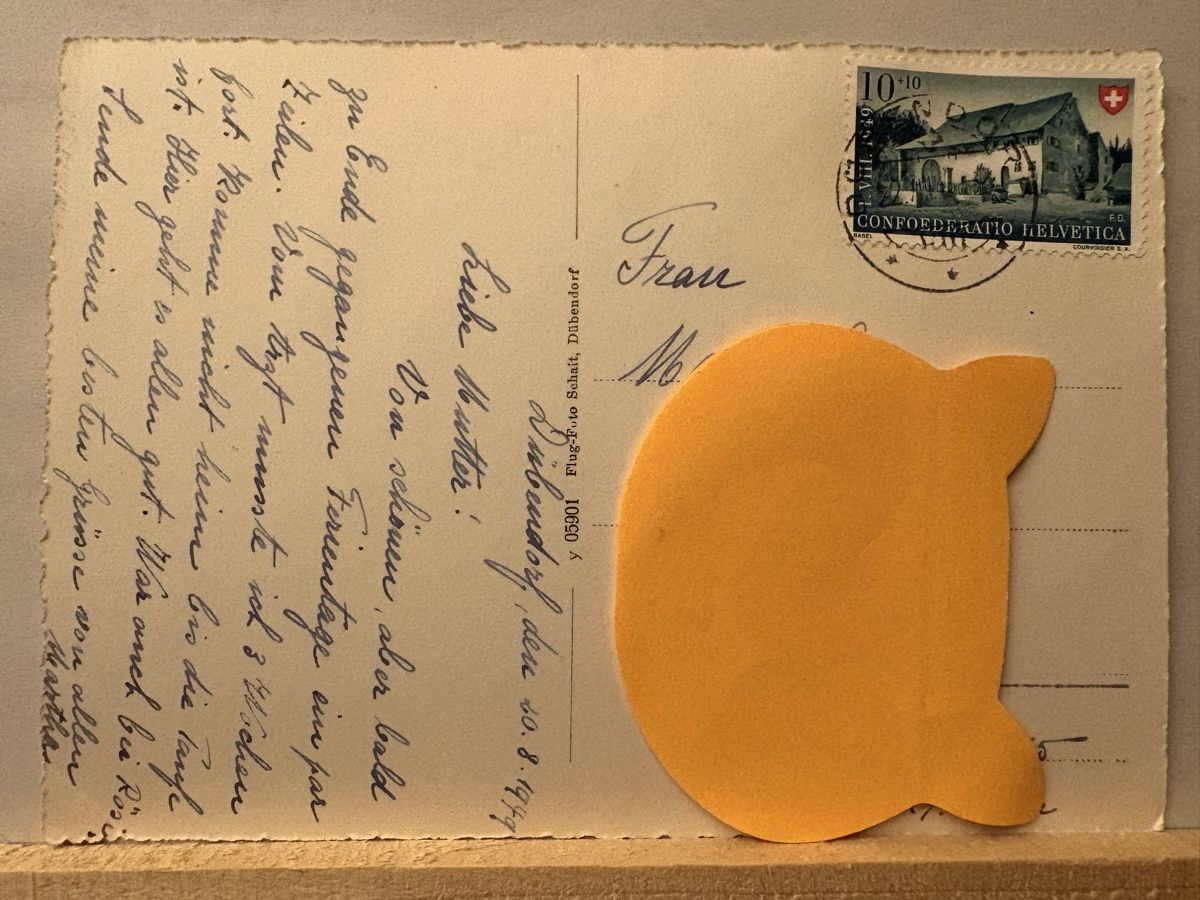 Dübendorf, den 20.8.1949
Liebe Mutter!
Von schönen, aber bald
zu Ende gegangenen Ferientage ein par
Zeilen. Vom Arzt musste ich 3 Wochen
fort. Komme nicht heim bis die Taufe
ist. Hier geht es allen gut. War auch bei Rösi
Sende meine besten Grüsse von allen
Martha
y 05901 Flug-Foto Schait, Dübendorf
10+10
1.VIII.1949
CONFOEDERATIO HELVETICA
F.D.
BASEL
COURVOISIER S.A.
Frau